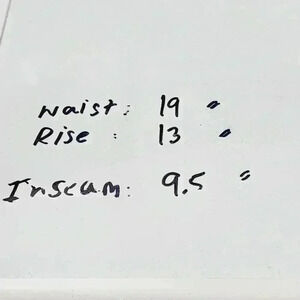 Waist: 19 "
Rise : 13 "
Inseam: 9.5 "